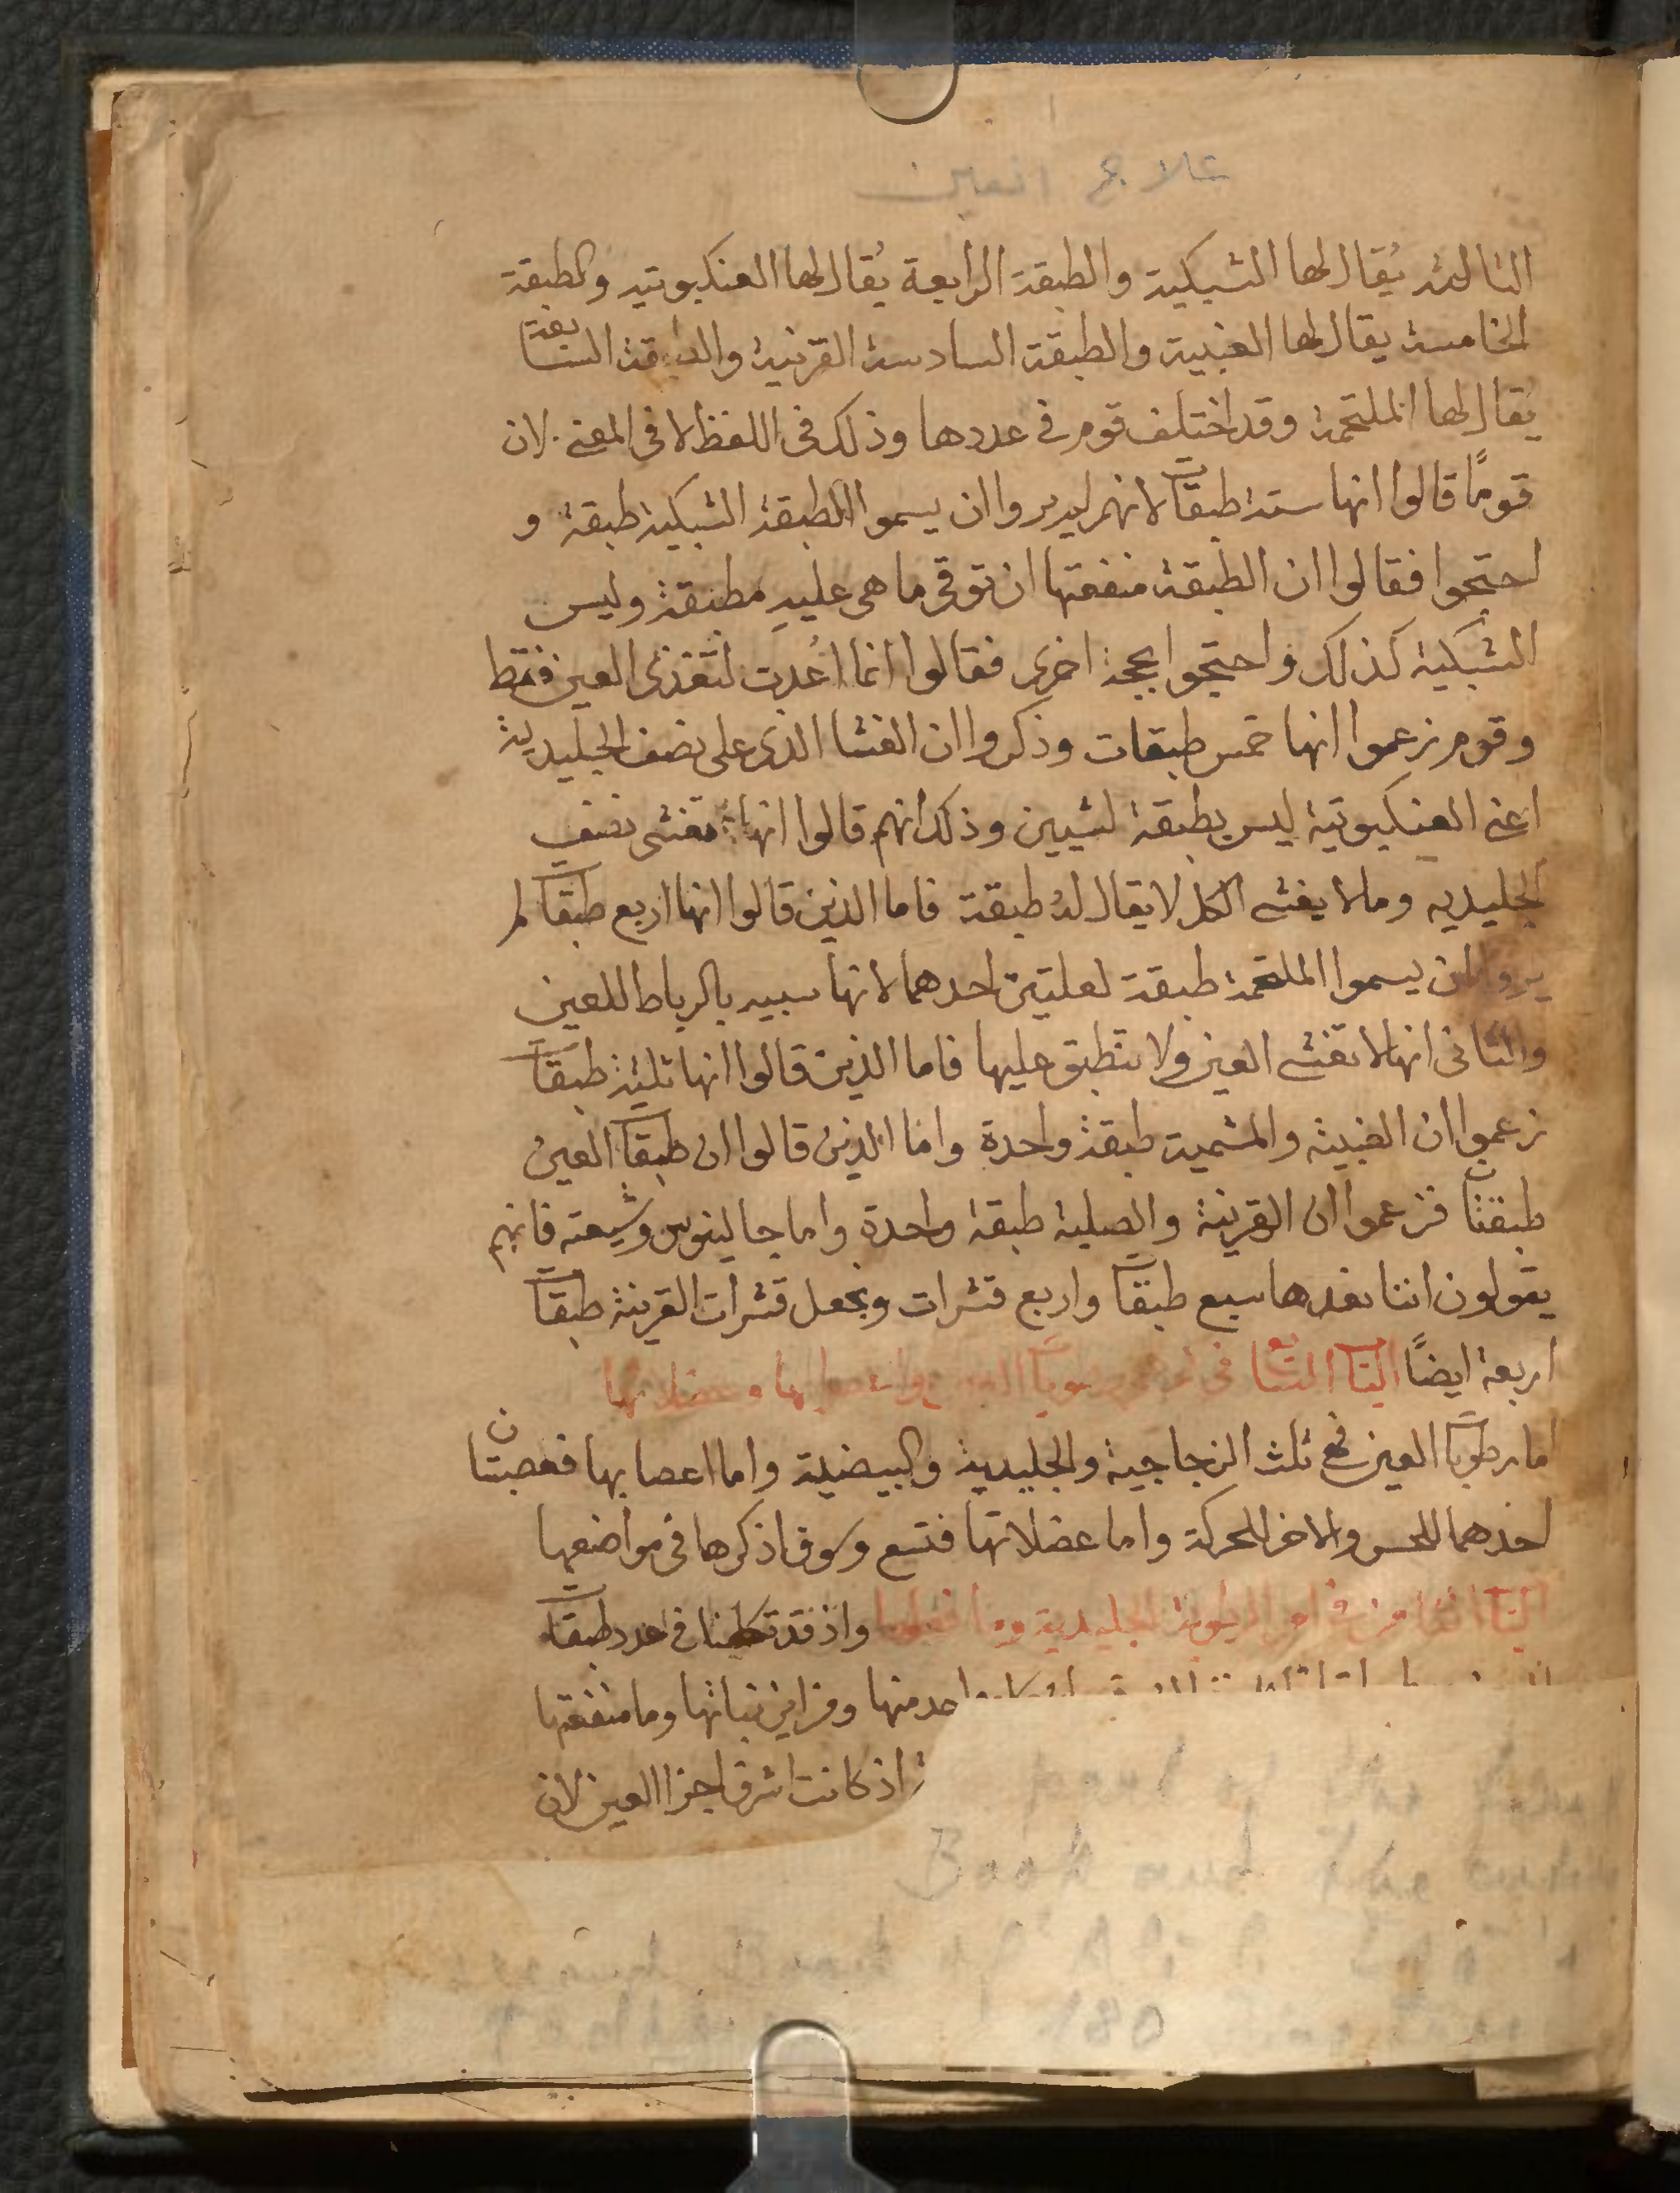 علاج العين
الثالثة يُقال لها الشبكية والطبقة الرابعة يُقال لها العنكبوتيه والطبقة
الخامسة يقال لها العنبية والطبقة السادسة القرنية والطبقة السابعة
يُقال لها الملتحمة وقد اختلف قوم في عددها وذلك في اللفظ لا في المعنى لان
قومًا قالوا انها ستة طبقات لانهم لم يروا ان يسموا الطبقة الشبكية طبقة و
احتجوا فقالوا ان الطبقة منفعتها ان توقى ما هى عليه مطبقة وليس
الشبكية كذلك واحتجوا بحجة اخرى فقالوا انما اُعدت لتغذى العين فقط
وقوم زعموا انها خمس طبقات وذكروا ان الغشا الذى على نصف الجليدية
اعنى العنكبوتية ليس بطبقة لشيين وذلك انهم قالوا انها تغشى نصف
الجليديه وما لا يغشى الكل لا يقال له طبقة فاما الذين قالوا انها اربع طبقات لم
يروا ان يسموا الملتحمة طبقة لعلتين احدهما لانها شبيه بالرباط للعين
والثانى انها لا تغشى العين ولا تنطبق عليها فاما الذين قالوا انها ثلثة طبقات
زعموا ان العنبية والمشمية طبقة واحدة واما الذين قالوا ان طبقات العين
طبقتان فزعموا ان القرنية والصلبة طبقة واحدة واما جالينوس وشيعته فانهم
يقولون اننا نعدها سبع طبقات واربع قشرات ونجعل قشرات القرنية طبقات
اربعة ايضًا الباب السابع في رطوبات العين واعصابها وعضلاتها
اما رطوبات العين فهى ثلث الزجاجية والجليدية والبيضية واما اعصابها فعصبتان
احدهما للحس والاخر للحركة واما عضلاتها فتسع وسوف اذكرها في مواضعها
الباب الثامن في امر الرطوبة الجليدية وما فعلها واذ قد تكلمنا في عدد طبقات
واحد منها ومن اين نباتها وما منفعتها
اذ كانت اشرف اجزا العين لان
Book and the
180